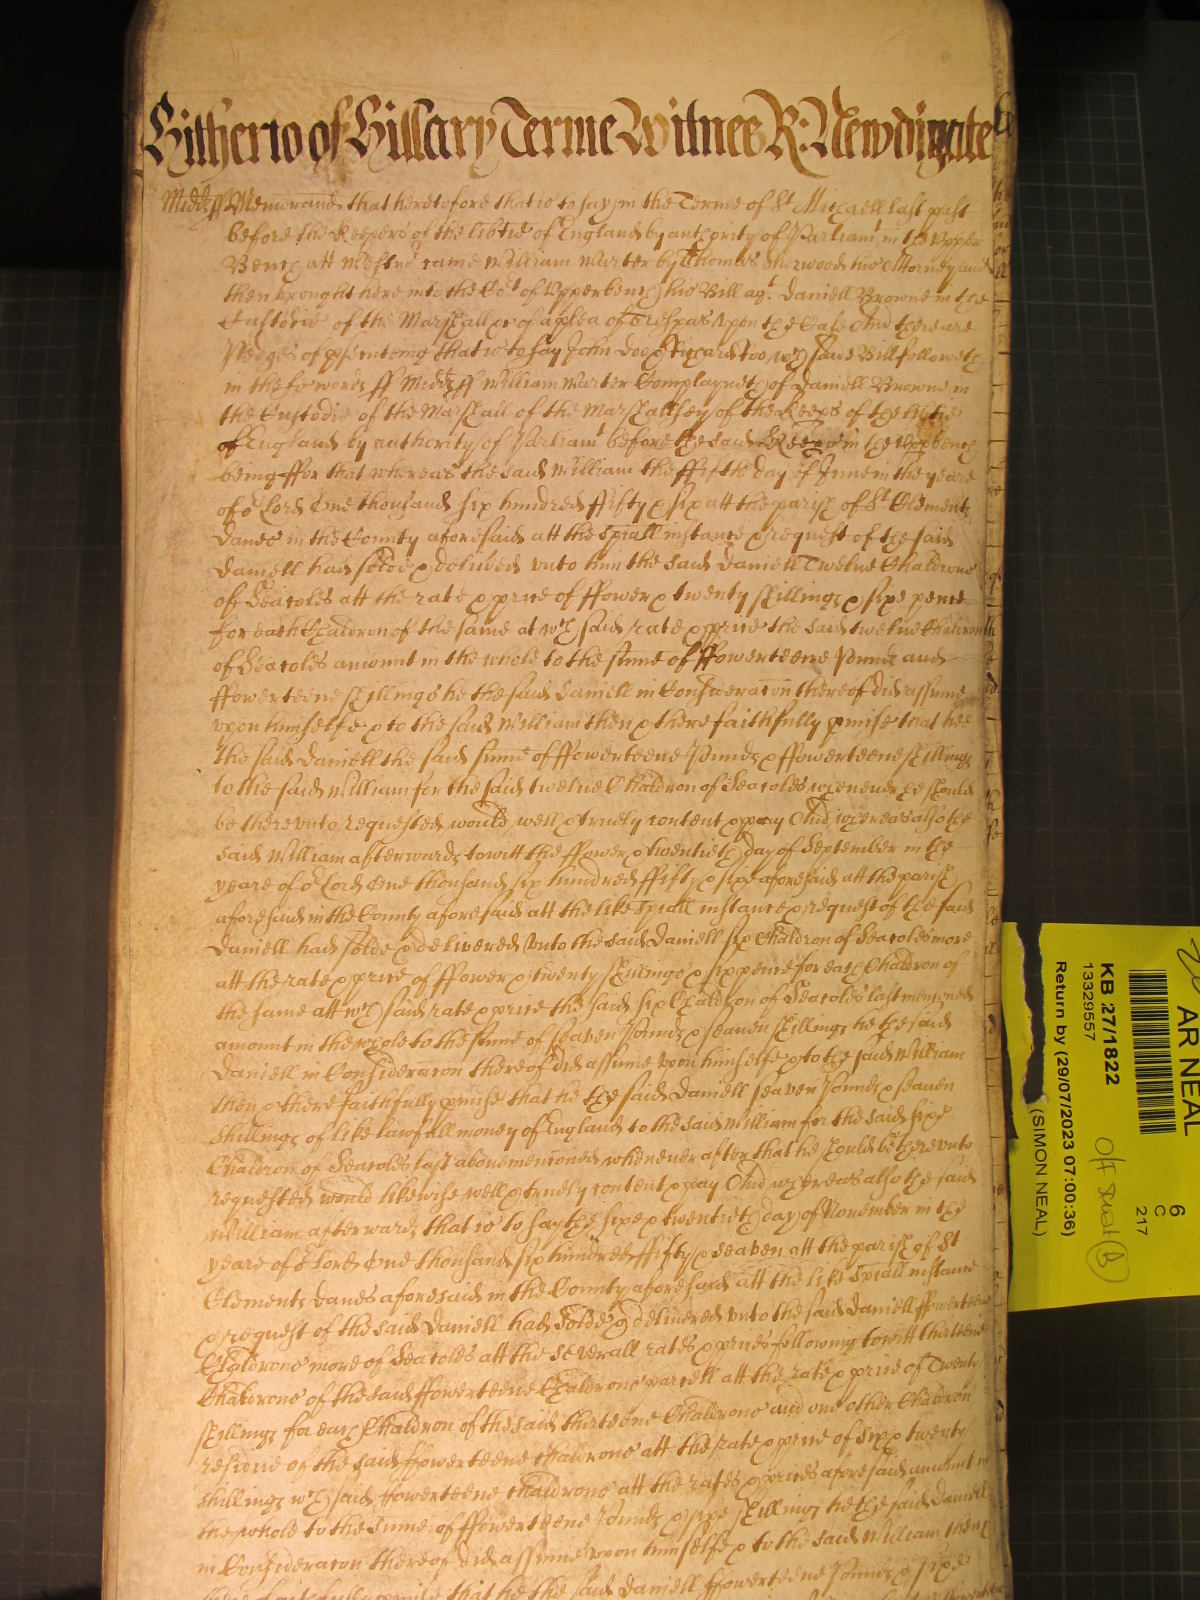 Hitherto of Hillary Terme Witnes R: Newdigate
Midds ss Memorand that heretofore that is to say in the Terme of St Michaell last past
before the Keepers of the lib'tie of England by authority of Parliamt in the Upper
Bench att Westm' came William Warter by Thomas Sherwood his Attorney and
then brought here into the Cot of Upperbench his Bill agt Daniell Browne in the
Custodie of the Marshall &c of a plea of Trespas upon the Case And there are
Pledges of p'senteing that is to say John Doo & Richard Roo wch said Bill followeth
in these words ss Midds ss William Warter Complayneth of Daniell Browne in
the Custodie of the Marshall of the Marshallsey of the Keeps of the lib'tie
of England by authority of Parliamt before the said Keeps in the Upp bench
being ffor that whereas the said William the ffifth day of June in the yeare
of or Lord One thousand six hundred ffifty & six att the parish of St Clements
Danes in the County aforesaid att the speiall instance & request of the said
Daniell had solde & deliu'ed unto him the said Daniell Twelue Chaldrons
of Seacoles att the rate & price of ffower & twenty shillings & sixe pence
for each Chaldron of the same at wch said rate & price the said twelue Chaldron
of Seacoles amount in the whole to the sume of ffowerteene Pounds and
ffowerteene shillings he the said Daniell in Consideracon thereof did assume
upon himselfe & to the said William then & there faithfully p'mise that hee
the said Daniell the said sume of ffowerteene Pounds & ffowerteene shillings
to the said William for the said twelue Chaldron of Seacoles wheneuer he should
be therevnto requested would well & truely content & pay And whereas also the
said William afterwards towitt the ffower & twentieth day of September in the
yeare of or Lord One thousand six hundred ffifty & sixe aforesaid att the parish
aforesaid in the County aforesaid att the like speiall instance & request of the said
Daniell had solde & delivered vnto the said Daniell six Chaldron of Seacoles more
att the rate & price of ffower & twenty shillings & six pence for each Chaldron of
the same att wch said rate & price the said six Chaldron of Seacoles last menconed
amount in the whole to the sume of seaven Pounds & seauen shillings he the said
Daniell in Consideracon thereof did assume upon himselfe & to the said William
then & there faithfully p'mise that he the said Daniell seaven Pounds & seauen
shillings of like lawfull money of England to the said William for the said sixe
Chaldron of Seacoles last aboue menconed wheneuer after that he should be therevnto
requested would likewise well & truely content & pay And whereas also the said
William afterwards that is to say the sixe & twentieth day of November in the
yeare of or Lord One thousand six hundred ffifty & seaven att the parish of St
Clements Danes aforesaid in the County aforesaid att the like speiall instance
& request of the said Daniell had solde & deliuered vnto the said Daniell ffowerteene
Chaldrons more of Seacoles att the severall rates & prices following towitt thirteene
Chaldrons of the said ffowerteene Chaldrons parcell att the rate & price of Twenty
shillings for each Chaldron of the said thirteene Chaldrons and one other Chaldron
residue of the said ffowerteene chaldrons att the rate & price of six & twenty
shillings wch said ffowerteene chaldrons att the rates & prices aforesaid amount in
the whole to the Sume of ffowerteene Pounds & sixe shillings he the said Daniell
in Consideracon thereof did assume vpon himselfe & to the said William then &
there faithfully p'mise that he the said Daniell ffowerteene Pounds & sixe
AR NEAL
6
C
217
KB 27/1822
13329557
Return by (29/07/2023 07:00:36)
(SIMON NEAL)